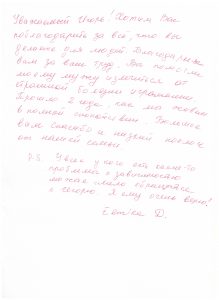 Уважаемый Игорь! Хотим Вас
поблагодарить за всё, что вы
делаете для людей. Благодарим
вам за ваш труд. Вы помогли
моему мужу излечиться от
страшной болезни
Прошло 2 года, как мы живем
в полном спокойствии. Большое
вам спасибо и низкий поклон
от нашей семьи.
P.S. У всех у кого есть какие-то
проблемы с зависимостью
можете смело обращаться
к Игорю. Я ему очень верю!
Д.